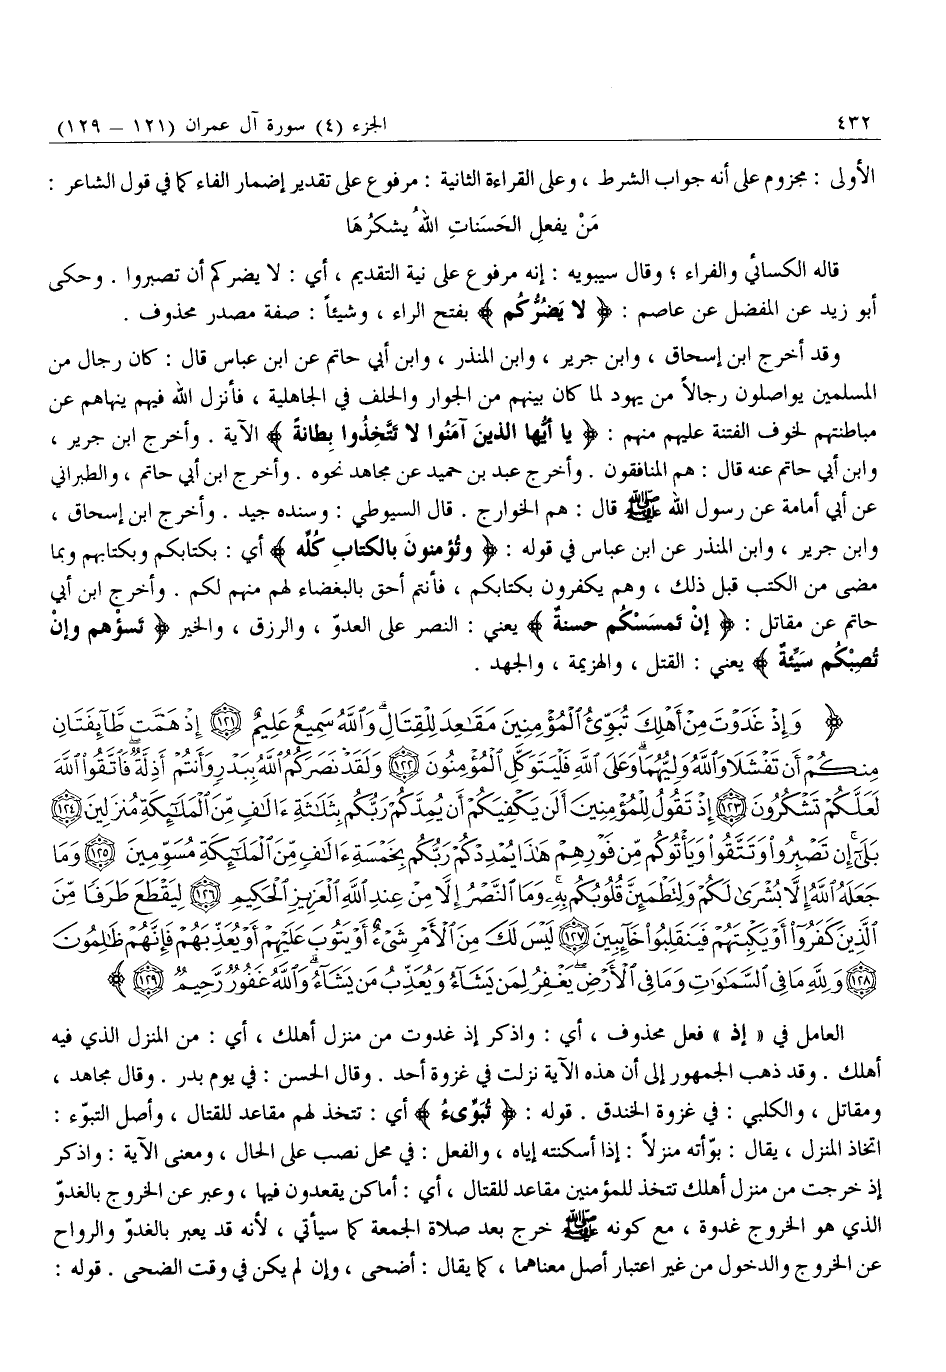 ٤٣٢
الجزء (٤) سورة آل عمران (١٢١ – ١٢٩)
الأولى : مجزوم على أنه جواب الشرط ، وعلى القراءة الثانية : مرفوع على تقدير إضمار الفاء كما في قول الشاعر :
مَنْ يفعلِ الحَسَناتِ اللهُ يشكرُهَا
قاله الكسائي والفراء ؛ وقال سيبويه : إنه مرفوع على نية التقديم ، أي : لا يضركم أن تصبروا . وحكى
أبو زيد عن المفضل عن عاصم : ﴿ لا يَضُرَّكُم ﴾ بفتح الراء ، وشيئاً : صفة مصدر محذوف .
وقد أخرج ابن إسحاق ، وابن جرير ، وابن المنذر ، وابن أبي حاتم عن ابن عباس قال : كان رجال من
المسلمين يواصلون رجالاً من يهود لما كان بينهم من الجوار والحلف في الجاهلية ، فأنزل الله فيهم ينهاهم عن
مباطنتهم لخوف الفتنة عليهم منهم : ﴿ يا أيُّها الذينَ آمَنُوا لا تَتَّخِذُوا بِطانةً ﴾ الآية . وأخرج ابن جرير ،
وابن أبي حاتم عنه قال : هم المنافقون . وأخرج عبد بن حميد عن مجاهد نحوه . وأخرج ابن أبي حاتم ، والطبراني
عن أبي أمامة عن رسول الله ﷺ قال : هم الخوارج . قال السيوطي : وسنده جيد . وأخرج ابن إسحاق ،
وابن جرير ، وابن المنذر عن ابن عباس في قوله : ﴿ وتُؤمنونَ بالكتابِ كُلِّه ﴾ أي : بكتابكم وبكتابهم وبما
مضى من الكتب قبل ذلك ، وهم يكفرون بكتابكم ، فأنتم أحق بالبغضاء لهم منهم لكم . وأخرج ابن أبي
حاتم عن مقاتل : ﴿ إنْ تَمسَسْكُم حسنةٌ ﴾ يعني : النصر على العدوّ ، والرزق ، والخير ﴿ تَسؤْهم وإنْ
تُصِبْكُم سَيِّئةٌ ﴾ يعني : القتل ، والهزيمة ، والجهد .
﴿ وَإِذْ غَدَوْتَ مِنْ أَهْلِكَ تُبَوِّئُ ٱلْمُؤْمِنِينَ مَقَٰعِدَ لِلْقِتَالِ ۗ وَٱللَّهُ سَمِيعٌ عَلِيمٌ ١٢١ إِذْ هَمَّت طَّآئِفَتَانِ
مِنكُمْ أَن تَفْشَلَا وَٱللَّهُ وَلِيُّهُمَا ۗ وَعَلَى ٱللَّهِ فَلْيَتَوَكَّلِ ٱلْمُؤْمِنُونَ ١٢٢ وَلَقَدْ نَصَرَكُمُ ٱللَّهُ بِبَدْرٍ وَأَنتُمْ أَذِلَّةٌ ۖ فَٱتَّقُوا۟ ٱللَّهَ
لَعَلَّكُمْ تَشْكُرُونَ ١٢٣ إِذْ تَقُولُ لِلْمُؤْمِنِينَ أَلَن يَكْفِيَكُمْ أَن يُمِدَّكُمْ رَبُّكُم بِثَلَٰثَةِ ءَالَٰفٍ مِّنَ ٱلْمَلَٰٓئِكَةِ مُنزَلِينَ ١٢٤
بَلَىٰٓ ۚ إِن تَصْبِرُوا۟ وَتَتَّقُوا۟ وَيَأْتُوكُم مِّن فَوْرِهِمْ هَٰذَا يُمْدِدْكُمْ رَبُّكُم بِخَمْسَةِ ءَالَٰفٍ مِّنَ ٱلْمَلَٰٓئِكَةِ مُسَوِّمِينَ ١٢٥ وَمَا
جَعَلَهُ ٱللَّهُ إِلَّا بُشْرَىٰ لَكُمْ وَلِتَطْمَئِنَّ قُلُوبُكُم بِهِۦ ۗ وَمَا ٱلنَّصْرُ إِلَّا مِنْ عِندِ ٱللَّهِ ٱلْعَزِيزِ ٱلْحَكِيمِ ١٢٦ لِيَقْطَعَ طَرَفًا مِّنَ
ٱلَّذِينَ كَفَرُوٓا۟ أَوْ يَكْبِتَهُمْ فَيَنقَلِبُوا۟ خَآئِبِينَ ١٢٧ لَيْسَ لَكَ مِنَ ٱلْأَمْرِ شَىْءٌ أَوْ يَتُوبَ عَلَيْهِمْ أَوْ يُعَذِّبَهُمْ فَإِنَّهُمْ ظَٰلِمُونَ
١٢٨ وَلِلَّهِ مَا فِى ٱلسَّمَٰوَٰتِ وَمَا فِى ٱلْأَرْضِ ۚ يَغْفِرُ لِمَن يَشَآءُ وَيُعَذِّبُ مَن يَشَآءُ ۚ وَٱللَّهُ غَفُورٌ رَّحِيمٌ ١٢٩ ﴾
العامل في « إذ » فعل محذوف ، أي : واذكر إذ غدوت من منزل أهلك ، أي : من المنزل الذي فيه
أهلك . وقد ذهب الجمهور إلى أن هذه الآية نزلت في غزوة أحد . وقال الحسن : في يوم بدر . وقال مجاهد ،
ومقاتل ، والكلبي : في غزوة الخندق . قوله : ﴿ تُبَوِّىءُ ﴾ أي : تتخذ لهم مقاعد للقتال ، وأصل التبوّء :
اتخاذ المنزل ، يقال : بوّأته منزلاً : إذا أسكنته إياه ، والفعل : في محل نصب على الحال ، ومعنى الآية : واذكر
إذ خرجت من منزل أهلك تتخذ للمؤمنين مقاعد للقتال ، أي : أماكن يقعدون فيها ، وعبر عن الخروج بالغدوّ
الذي هو الخروج غدوة ، مع كونه ﷺ خرج بعد صلاة الجمعة كما سيأتي ، لأنه قد يعبر بالغدوّ والرواح
عن الخروج والدخول من غير اعتبار أصل معناهما ، كما يقال : أضحى ، وإن لم يكن في وقت الضحى . قوله :